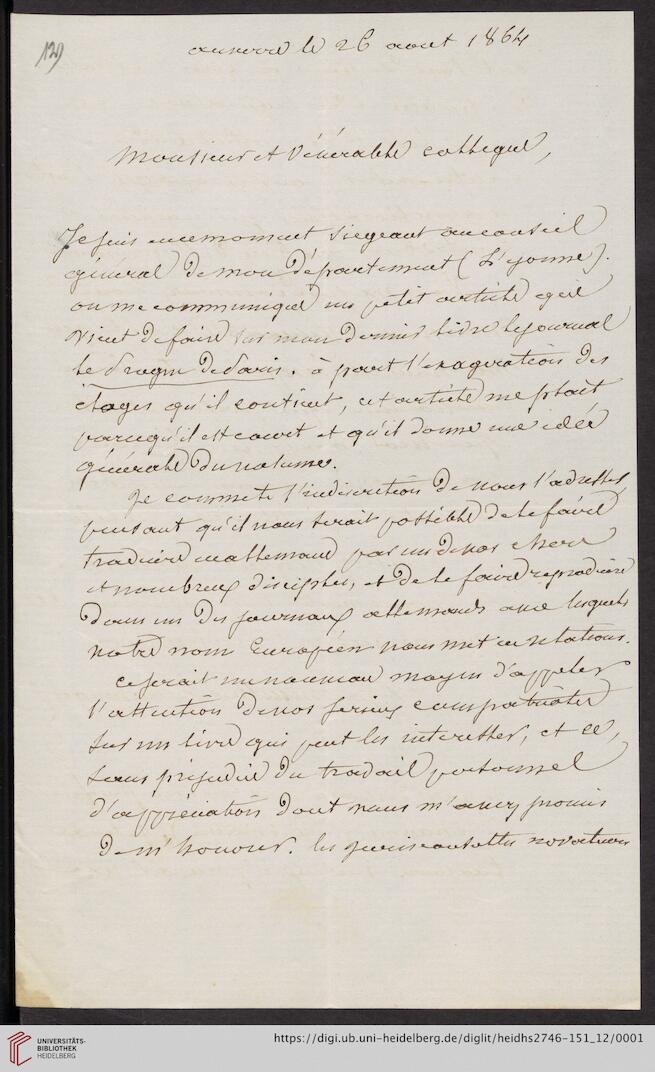 129
auxerre le 26 aout 1864
Monsieur et Vénérable collegue,
Je suis en ce moment siegeant au conseil
général de mon département (L'yonne).
on me communique un petit article que
vient de faire sur mon dernier livre le journal
le de Paris. à part l'exageration des
éloges qu'il contient, cet article me plait
parcequ'il est court et qu'il donne une idée
générale du volume.
Je commets l'indiscretion de vous l'adresser,
pensant qu'il vous serait possible de le faire
traduire en allemand par un de vos chers
et nombreux disciples, et de le faire reproduire
dans un des journaux allemands avec lesquels
votre nom Européen vous met en relations.
ce serait un nouveau moyen d'appeler
l'attention de vos compatriotes
sur un livre qui peut les interesser, et ce,
sans préjudice du travail personnel
d'appréciation dont vous m'avez promis
de m'honorer. les
UNIVERSITÄTS-
BIBLIOTHEK
HEIDELBERG
https://digi.ub.uni-heidelberg.de/diglit/heidhs2746-151_12/0001